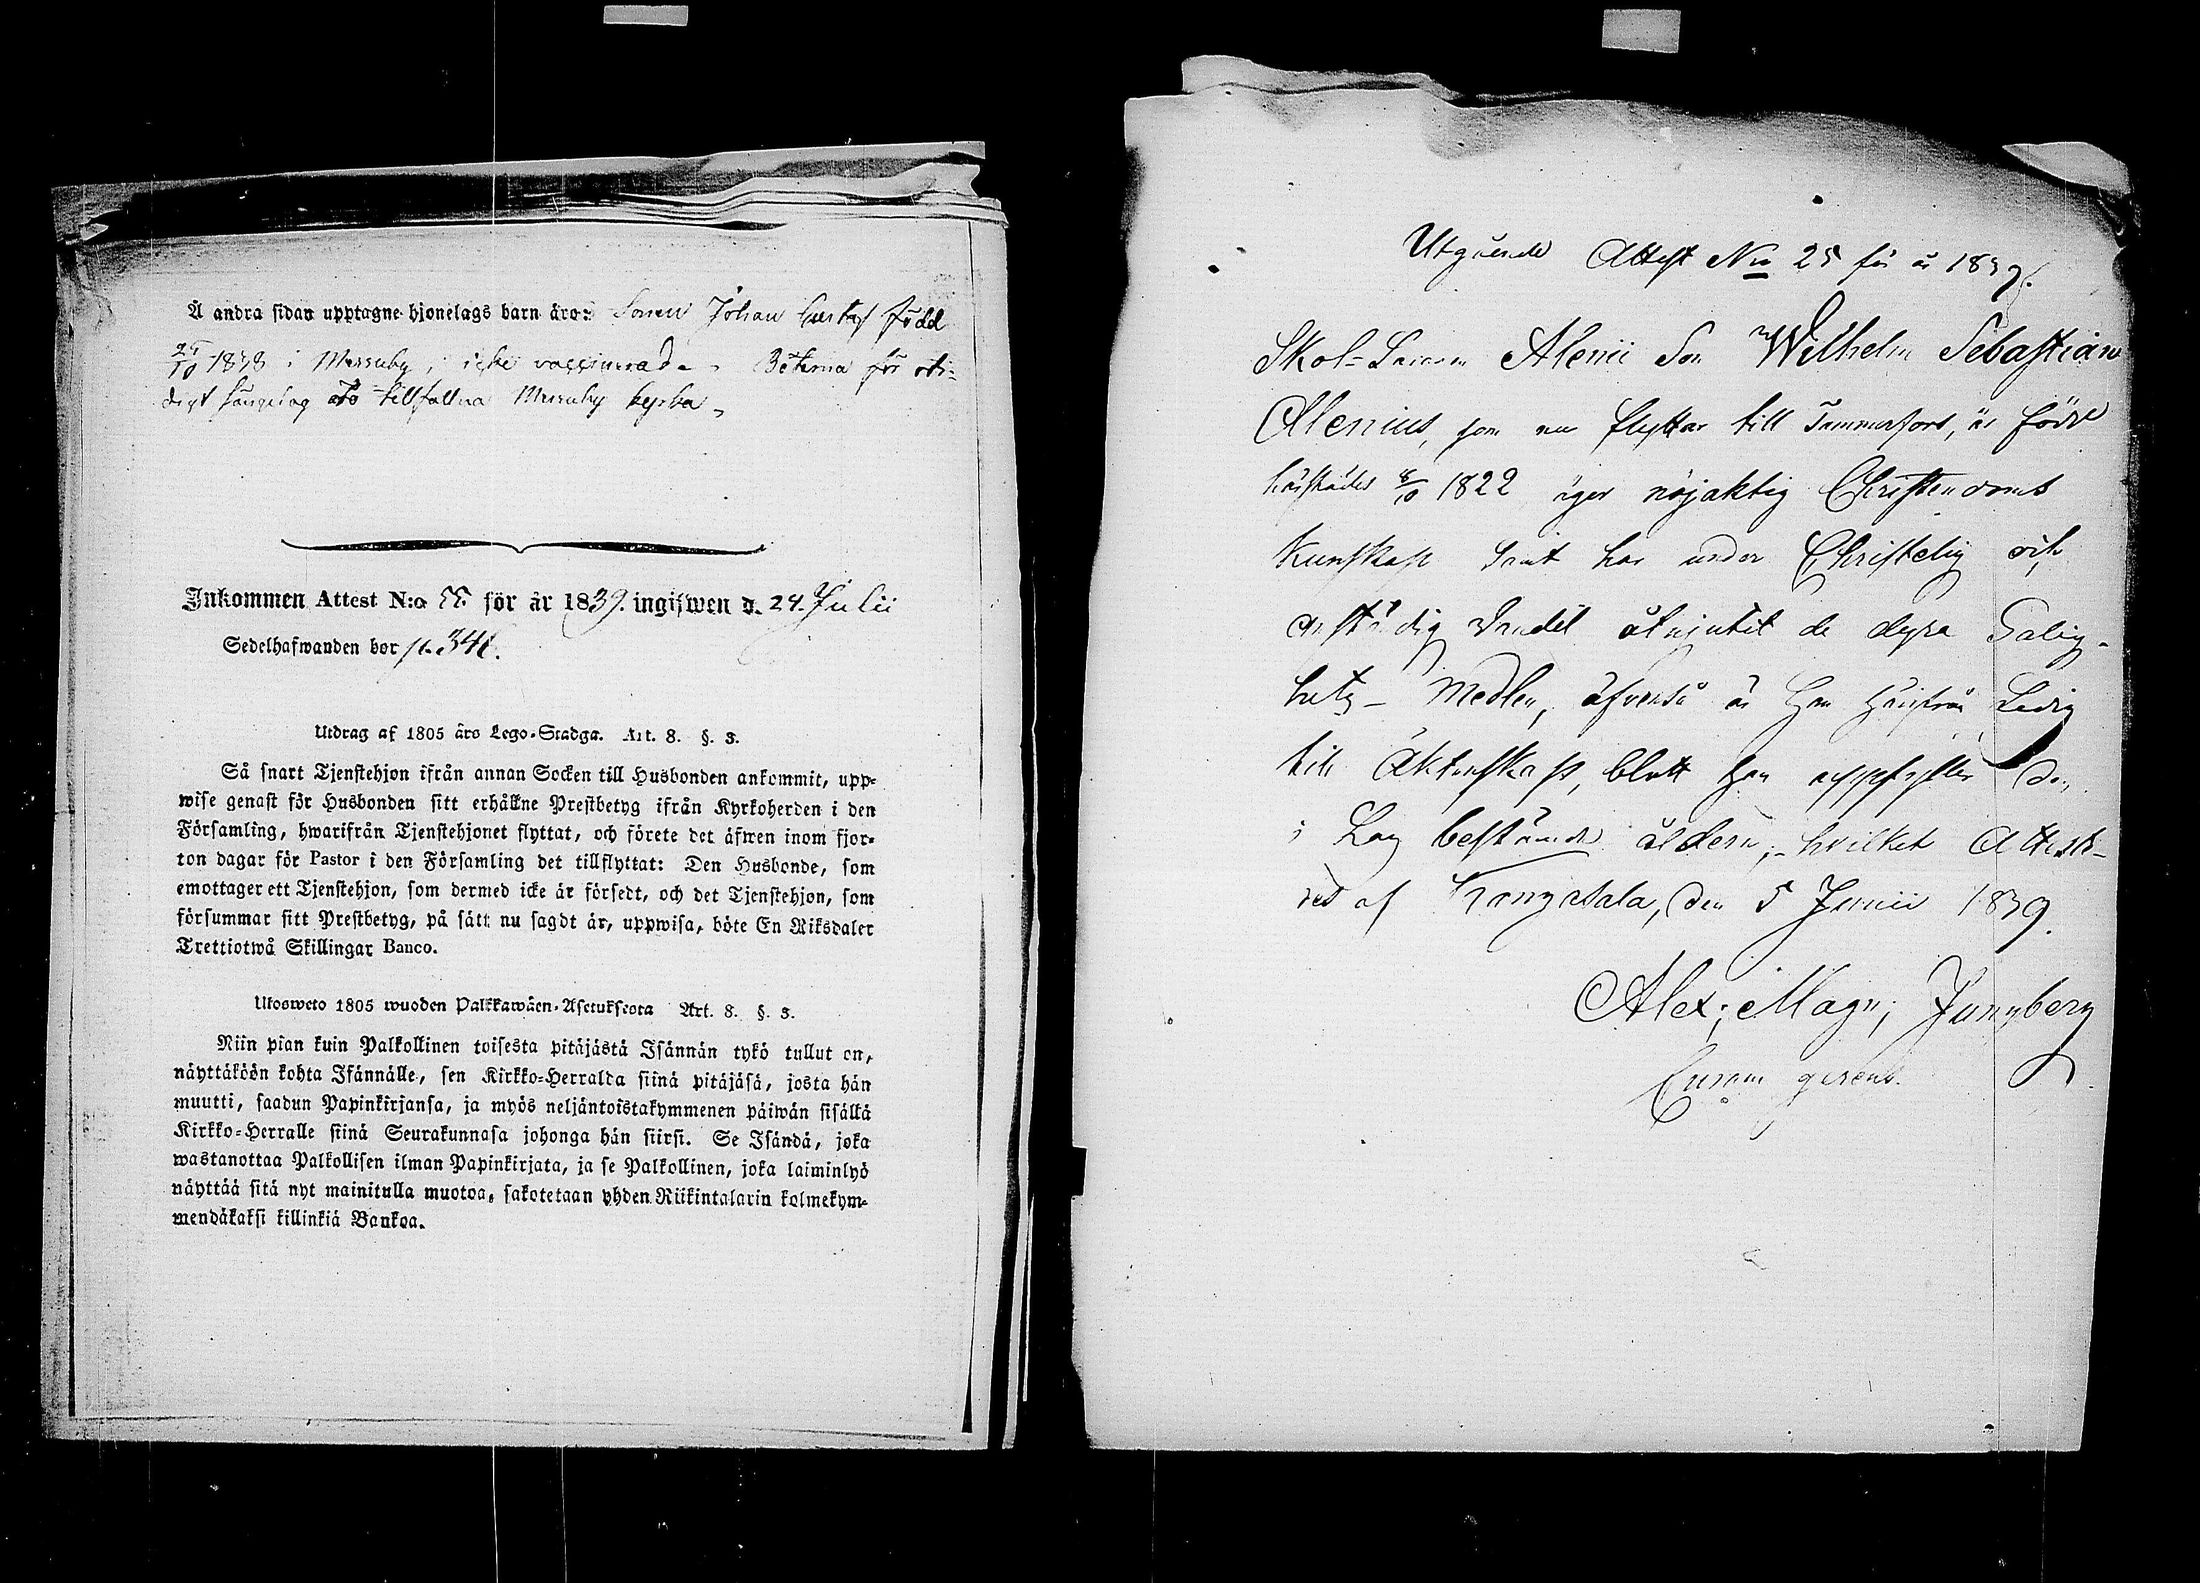 Å andra sidan upptagne hjonelags barn äro: Sonen Johan Gustaf född
25/10 1838 i Messuby, icke vaccinerade. Böterna för oti-
digt sängelag tillfallna Messuby kyrka.
Inkommen Attest N:o 55 för år 1839. ingifwen d. 24. Julii
Sedelhafwanden bor p. 341.
Utdrag af 1805 års Lego-Stadga. Art. 8. §. 3.
Så snart Tjenstehjon ifrån annan Socken till Husbonden ankommit, upp-
wise genast för Husbonden sitt erhållne Prestbetyg ifrån Kyrkoherden i den
Församling, hwarifrån Tjenstehjonet flyttat, och förete det äfwen inom fjor-
ton dagar för Pastor i den Församling det tillflyttat: Den Husbonde, som
emottager ett Tjenstehjon, som dermed icke är försedt, och det Tjenstehjon, som
försummar sitt Prestbetyg, på sätt nu sagdt är, uppwisa, böte En Riksdaler
Trettiotwå Skillingar Banco.
Ulosweto 1805 wuoden Palkkawäen-Asetuksesta Art. 8. §. 3.
Niin pian kuin Palkollinen toisesta pitäjästä Isännän tykö tullut on,
näyttäköön kohta Isännälle, sen Kirkko-Herralda siinä pitäjäsä, josta hän
muutti, saadun Papinkirjansa, ja myös neljäntoistakymmenen päiwän sisällä
Kirkko-Herralle siinä Seurakunnasa johonga hän siirsi. Se Isändä, joka
wastanottaa Palkollisen ilman Papinkirjata, ja se Palkollinen, joka laiminlyö
näyttää sitä nyt mainitulla muotoa, sakotetaan yhden Riikintalarin kolmekym-
mendäkaksi killinkiä Bankoa.
Utgående Attest No 25 för år 1839.
Skol-Läraren Alenii Son Wilhelm Sebastian
Alenius, som nu flyttar till Tammerfors, är född
härstädes 8/10 1822 äger nöjaktig Christendoms
Kunskap samt har under Christelig och
anständig Vandel åtnjutit de dyra Salig-
hets-Medlen, äfvenså är Han härifrån Ledig
till Äktenskap, blott han uppfyller den
i Lag bestämde åldern; hvilket Attest-
res af Kangasala, den 5 Junii 1839.
Alex; Magn; Ljungberg
Curam gerens.